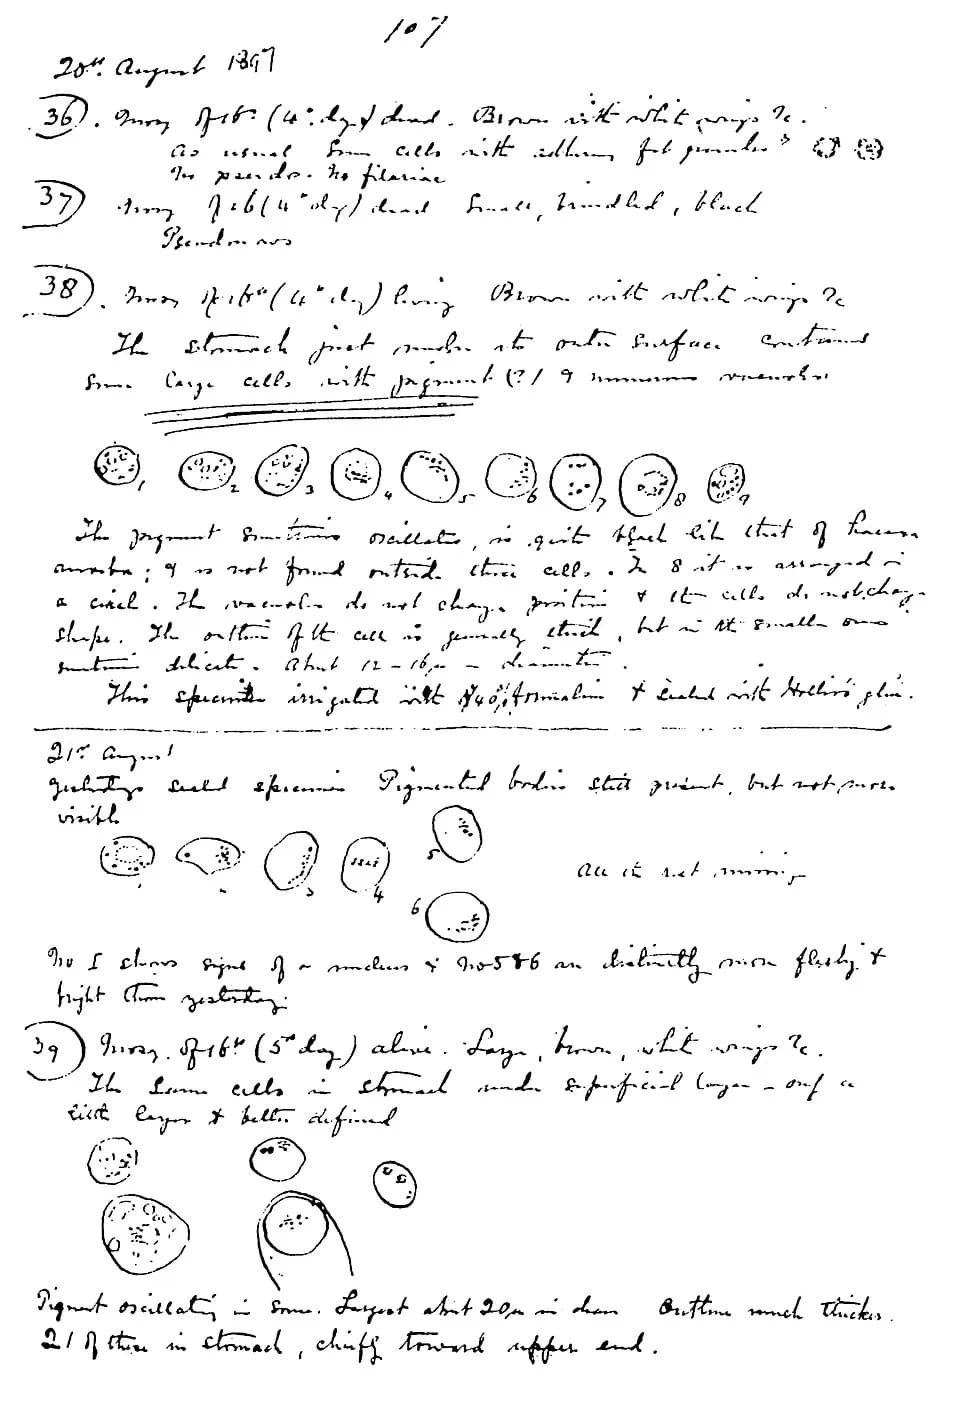 107
20th. August 1897
36. Mosq of 16th (4th day) dead. Brown with white wings &c.
As usual some cells with adhering fat granules
No pseudo. No filariae
37 Mosq of 16 (4th day) dead Small, brindled, black
Pseudonavs
38. Mosq of 16th (4th day) living Brown with white wings &c
The stomach just under its outer surface contained
some large cells with pigment (?) & numerous vacuoles
1 2 3 4 5 6 7 8 9
The pigment sometimes oscillates, is quite black like that of
amoeba; & is not found outside these cells. In 8 it is arranged in
a circle. The vacuoles do not change position & the cells do not change
shape. The outline of the cell is generally thick, but in the smaller ones
sometimes delicate. About 12 - 16 µ - diameter.
This specimen irrigated with 40% formalin & sealed with Hollis's glue.
21st August
Yesterdays sealed specimen Pigmented bodies still present, but not more
visible
1 2 3 4 5 6
All the rest missing
No 1 shows signs of a nucleus & No 5 & 6 are distinctly more fleshy &
bright than yesterday.
39 Mosq. of 16th (5th day) alive. Large, brown, white wings &c.
The same cells in stomach under superficial layer - only a
little larger & better defined
Pigment oscillating in some. Largest about 20µ in diam Outline much thicker.
21 of these in stomach, chiefly toward upper end.